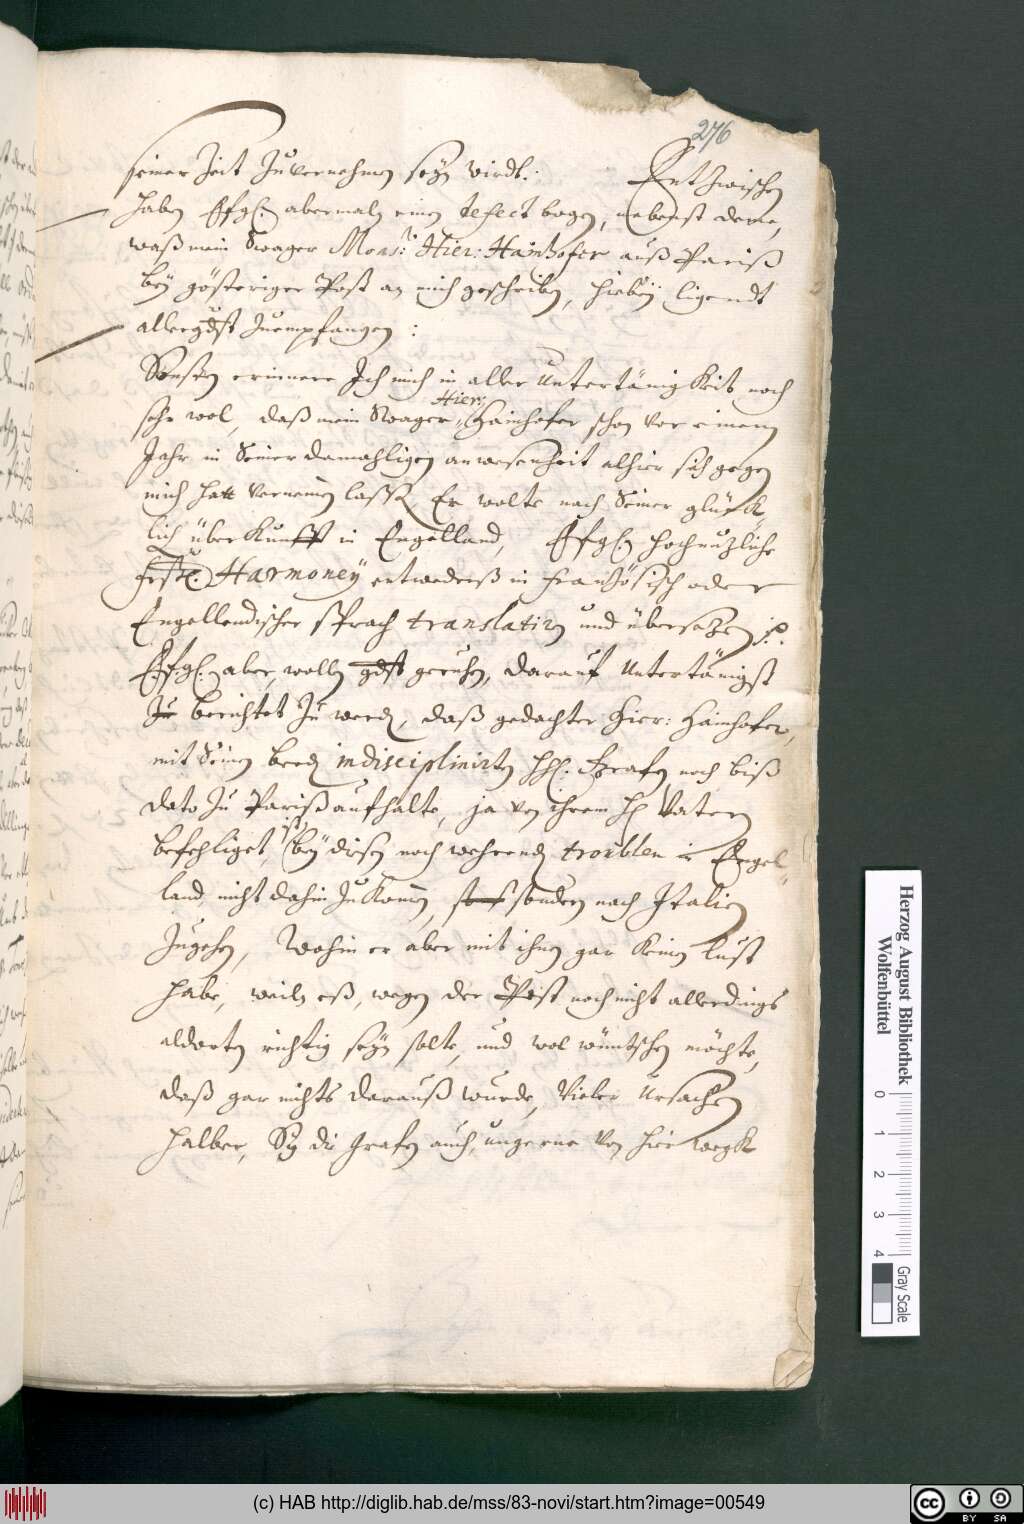 276
seiner Zeit Zuvernehmen seÿn wirdt.: Entzwischen
haben Efgl: abermaln einen defect bogen, nebenst deme,
waß mein Swager Mons:r Hier: Hainhofer auß Pariß
beÿ gösteriger Post an mich geschriben, hiebeÿ ligendt
allergdst Zuempfangen :
Sonsten erinnere Ich mich in aller Untertänigkeit noch
sehr wol, daß mein Swager Hier: Hainhofer schon vor einem
Jahr in Seiner damahligen anwesenheit alhier sich gegen
mich hatt vernemen lassen, Er wolte nach Seiner glück-
lich überkunfft in Engelland, Efgl: hochnuzliche
Frstl: Harmoneÿ entwederß in französisch oder
Engellendischer sprach translatirn und übersezen p.
Efgl: aber, wollen gdst geruhen, darauf Untertänigst
Zu berichtet Zu werden, daß gedachter Hier: Hainhofer,
mit Seinen beeden indisciplinirten hh: Grafen noch biß
dato Zu Pariß aufhalte, ja von ihrem hn Vatern
befehliget ist, beÿ disen noch wehrenden troublen in Engel-
land nicht dahin Zu komen, sondern nach Italien
Zugehen, Wohin er aber mit ihnen gar keinen Lust
habe, weiln eß, wegen der Post noch nicht allerdings
aldorten richtig seÿn solte, und wol wüntschen möchte,
daß gar nichts darauß wurde, Vieler Ursachen
halber, Sÿ die Grafen auch, ungerne von hier wegk
Herzog August Bibliothek
Wolfenbüttel
0 1 2 3 4
Gray Scale
(c) HAB http://diglib.hab.de/mss/83-novi/start.htm?image=00549
cc BY SA